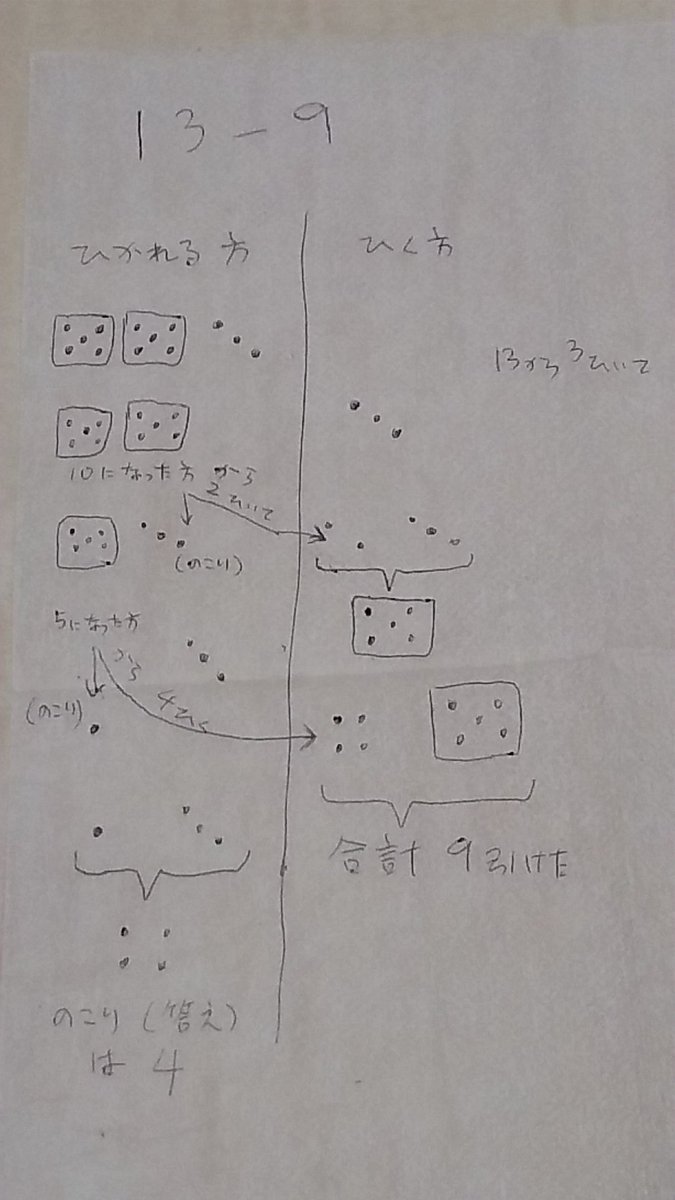 13-9
ひかれる方
ひく方
13から3ひいて
10になった方から
2ひいて
(のこり)
5になった方
から
4ひく
(のこり)
合計 9引けた
のこり(答え)
は 4